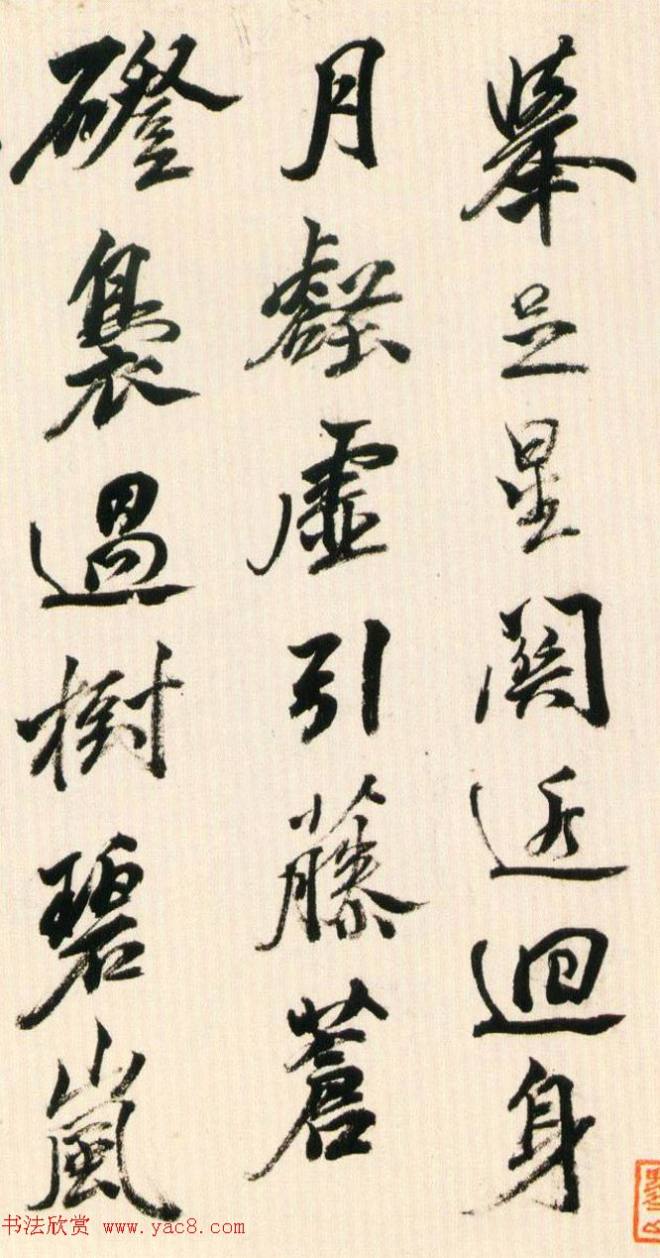 舉足星関透迴身
月壑虛引藤蒼
磴裊過樹碧嵐
书法欣赏 www.yac8.com